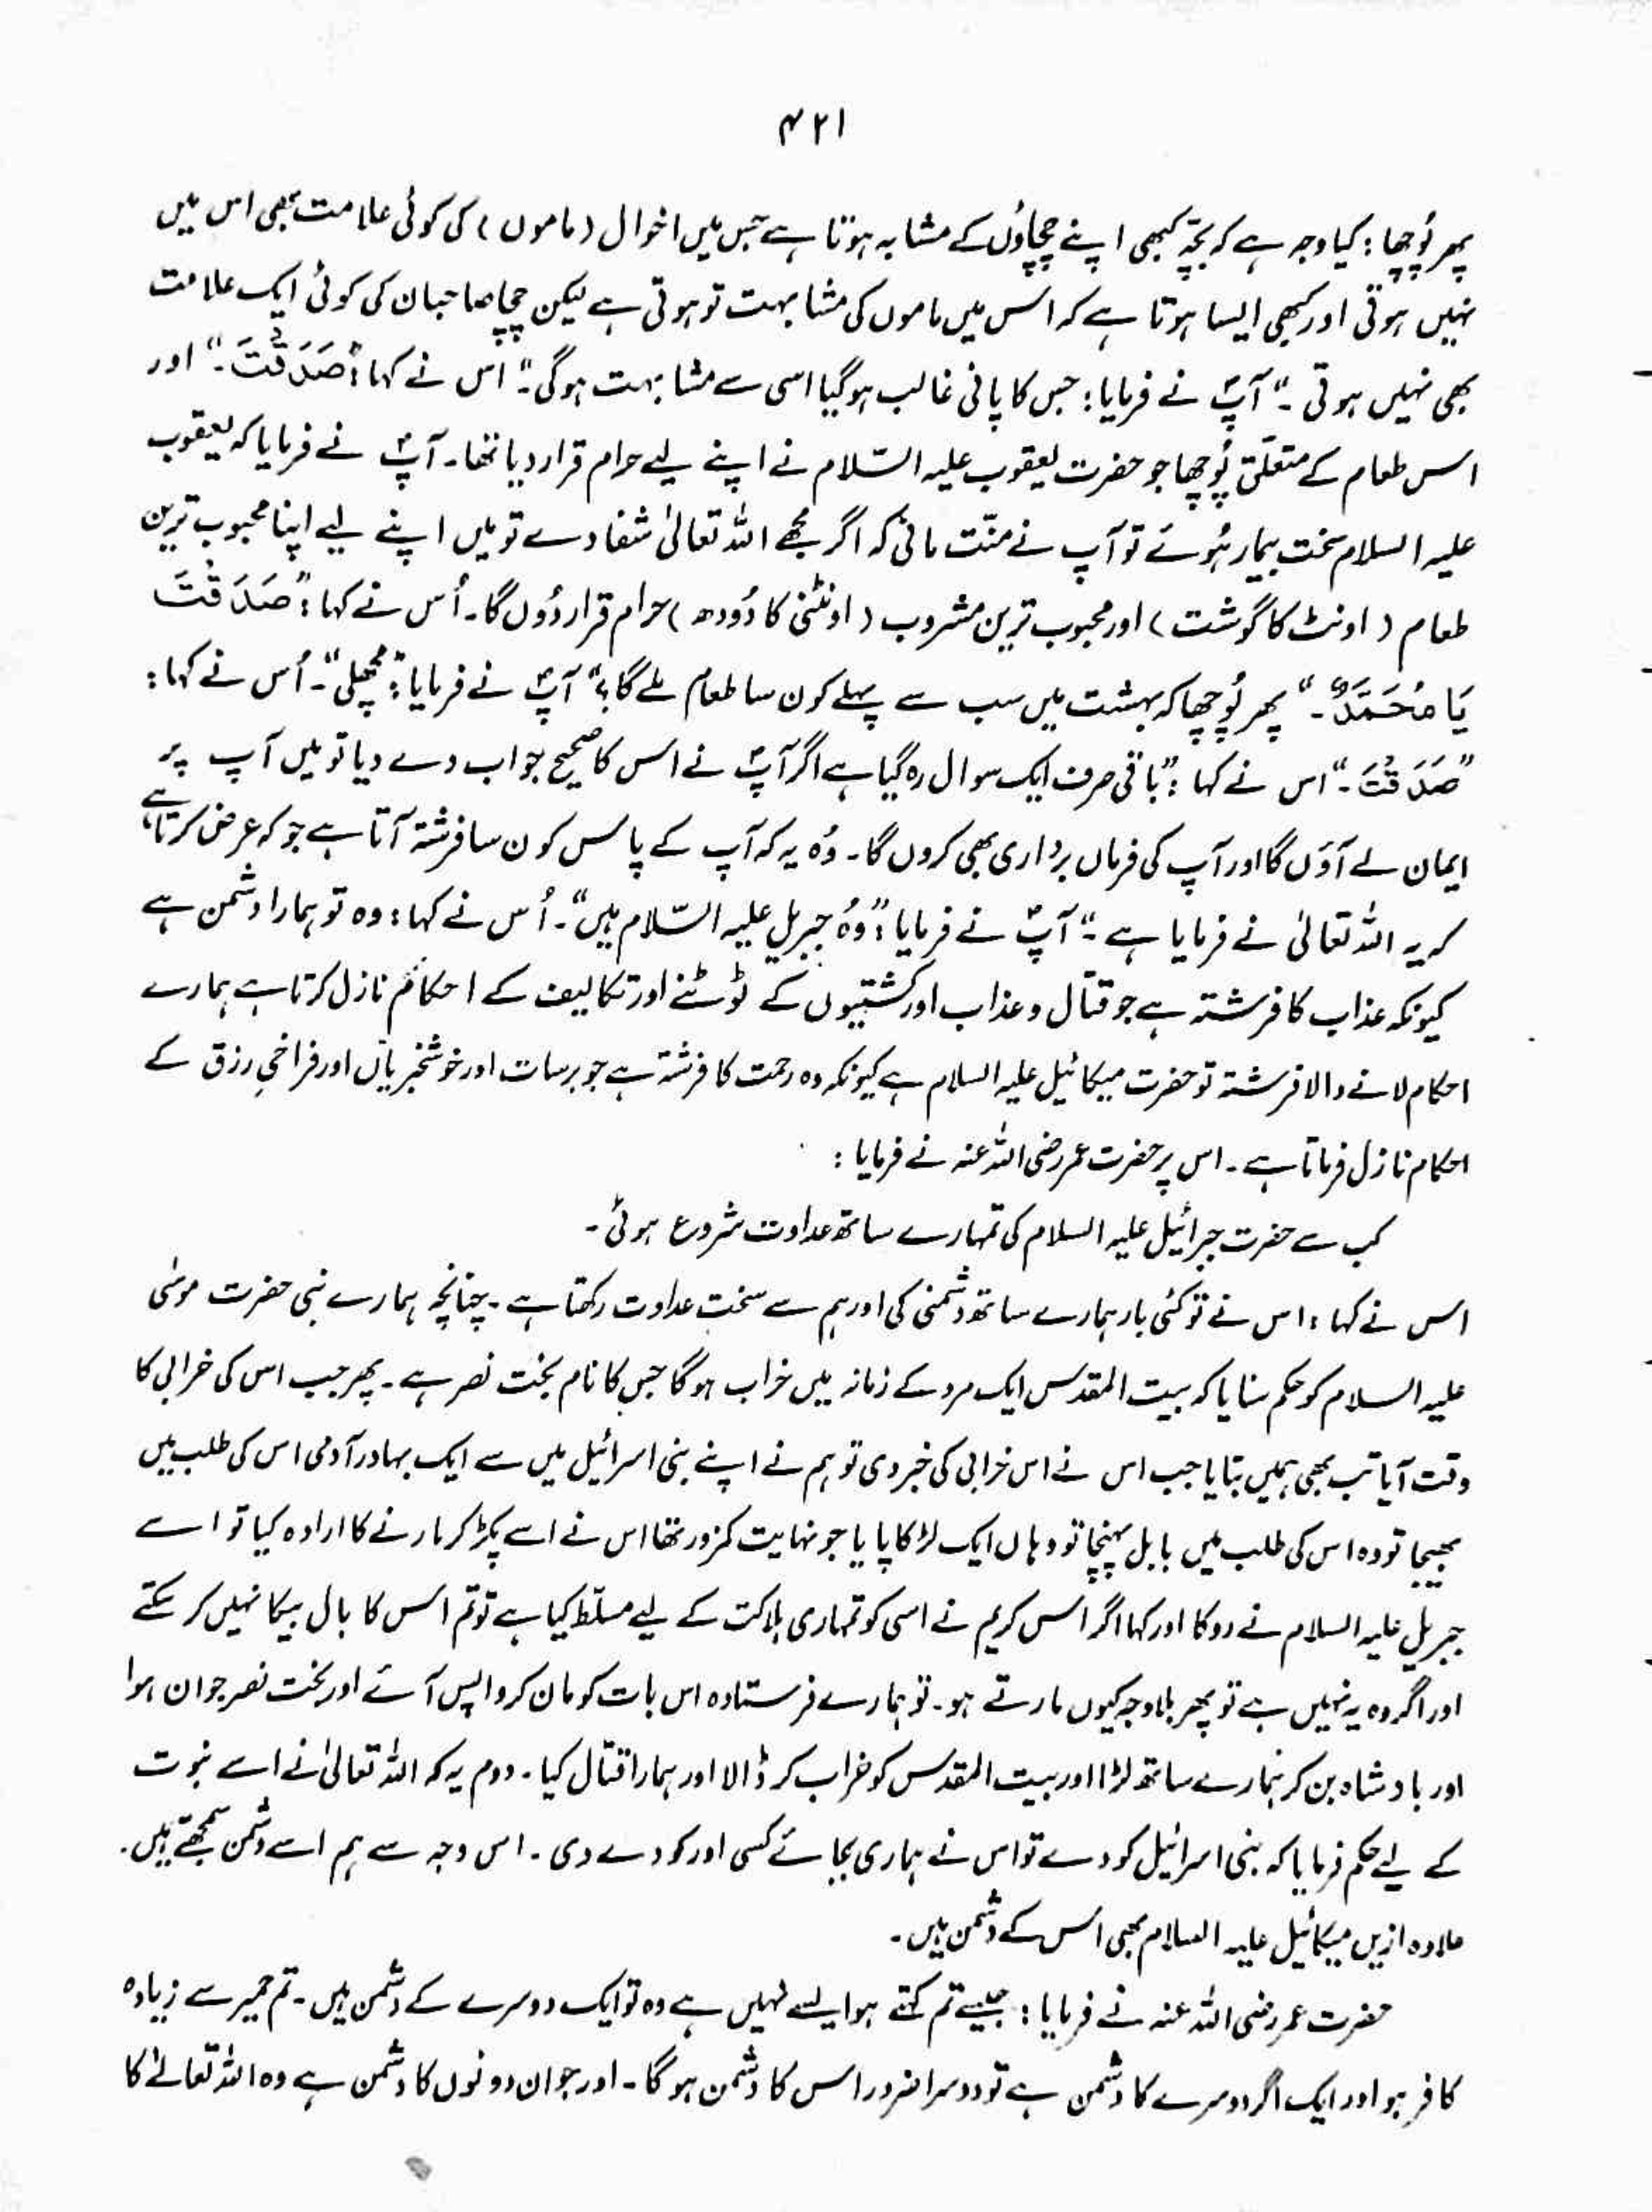 ۴۲۱
پھر پُوچھا : کیا وجہ ہے کہ بچّہ کبھی اپنے چچاؤں کے مشابہ ہوتا ہے جس میں اخوال (ماموں) کی کوئی علامت بھی اس میں
نہیں ہوتی اور کبھی ایسا ہوتا ہے کہ اس میں ماموں کی مشابہت تو ہوتی ہے لیکن چچا صاحبان کی کوئی ایک علامت
بھی نہیں ہوتی ۔“ آپؐ نے فرمایا : جس کا پانی غالب ہوگیا اسی سے مشابہت ہوگی۔“ اس نے کہا :”صَدَقْتَ ۔“ اور
اس طعام کے متعلّق پُوچھا جو حضرت یعقوب علیہ السّلام نے اپنے لیے حرام قرار دیا تھا۔ آپؐ نے فرمایا کہ یعقوب
علیہ السلام سخت بیمار ہُوئے تو آپ نے منّت مانی کہ اگر مجھے اللہ تعالیٰ شفا دے تو میں اپنے لیے اپنا محبوب ترین
طعام (اونٹ کا گوشت) اور محبوب ترین مشروب (اونٹنی کا دُودھ) حرام قرار دُوں گا۔ اُس نے کہا :”صَدَقْتَ
یَا مُحَمَّدُ ۔“ پھر پُوچھا کہ بہشت میں سب سے پہلے کون سا طعام ملے گا؟“ آپؐ نے فرمایا :”مچھلی“۔ اُس نے کہا :
”صَدَقْتَ ۔“ اس نے کہا :”باقی صرف ایک سوال رہ گیا ہے اگر آپؐ نے اس کا صحیح جواب دے دیا تو میں آپ پر
ایمان لے آؤں گا اور آپ کی فرماں برداری بھی کروں گا۔ وُہ یہ کہ آپ کے پاس کون سا فرشتہ آتا ہے جو کہ عرض کرتا ہے
کہ یہ اللہ تعالیٰ نے فرمایا ہے ۔“ آپؐ نے فرمایا :”وُہ جبریل علیہ السّلام ہیں“۔ اُس نے کہا : وہ تو ہمارا دشمن ہے
کیونکہ عذاب کا فرشتہ ہے جو قتال و عذاب اور کشتیوں کے ٹوٹنے اور تکالیف کے احکام نازل کرتا ہے ہمارے
احکام لانے والا فرشتہ تو حضرت میکائیل علیہ السلام ہے کیونکہ وہ رحمت کا فرشتہ ہے جو برسات اور خوشخبریاں اور فراخیِ رزق کے
احکام نازل فرماتا ہے ۔ اس پر حضرت عمر رضی اللہ عنہ نے فرمایا :
کب سے حضرت جبرائیل علیہ السلام کی تمہارے ساتھ عداوت شروع ہوئی ۔
اس نے کہا : اس نے تو کئی بار ہمارے ساتھ دشمنی کی اور ہم سے سخت عداوت رکھتا ہے ۔ چنانچہ ہمارے نبی حضرت موسٰی
علیہ السلام کو حکم سنایا کہ بیت المقدس ایک مرد کے زمانہ میں خراب ہوگا جس کا نام بخت نصر ہے ۔ پھر جب اس کی خرابی کا
وقت آیا تب بھی ہمیں بتایا جب اس نے اس خرابی کی خبر دی تو ہم نے اپنے بنی اسرائیل میں سے ایک بہادر آدمی اس کی طلب میں
بھیجا تو وہ اس کی طلب میں بابل پہنچا تو وہاں ایک لڑکا پایا جو نہایت کمزور تھا اس نے اسے پکڑ کر مارنے کا ارادہ کیا تو اسے
جبریل علیہ السلام نے روکا اور کہا اگر اس کریم نے اسی کو تمہاری ہلاکت کے لیے مسلّط کیا ہے تو تم اس کا بال بیکا نہیں کر سکتے
اور اگر وہ یہ نہیں ہے تو پھر بلاوجہ کیوں مارتے ہو ۔ تو ہمارے فرستادہ اس بات کو مان کر واپس آئے اور بخت نصر جوان ہوا
اور بادشاہ بن کر ہمارے ساتھ لڑا اور بیت المقدس کو خراب کر ڈالا اور ہمارا قتال کیا ۔ دوم یہ کہ اللہ تعالیٰ نے اسے نبوت
کے لیے حکم فرمایا کہ بنی اسرائیل کو دے تو اس نے ہماری بجائے کسی اور کو دے دی ۔ اس وجہ سے ہم اسے دشمن سمجھتے ہیں ۔
علاوہ ازیں میکائیل علیہ السلام بھی اس کے دشمن ہیں ۔
حضرت عمر رضی اللہ عنہ نے فرمایا : جیسے تم کہتے ہو ایسے نہیں ہے وہ تو ایک دوسرے کے دشمن ہیں ۔ تم حمیر سے زیادہ
کافر ہو اور ایک اگر دوسرے کا دشمن ہے تو دوسرا ضرور اس کا دشمن ہوگا ۔ اور جو ان دونوں کا دشمن ہے وہ اللہ تعالےٰ کا